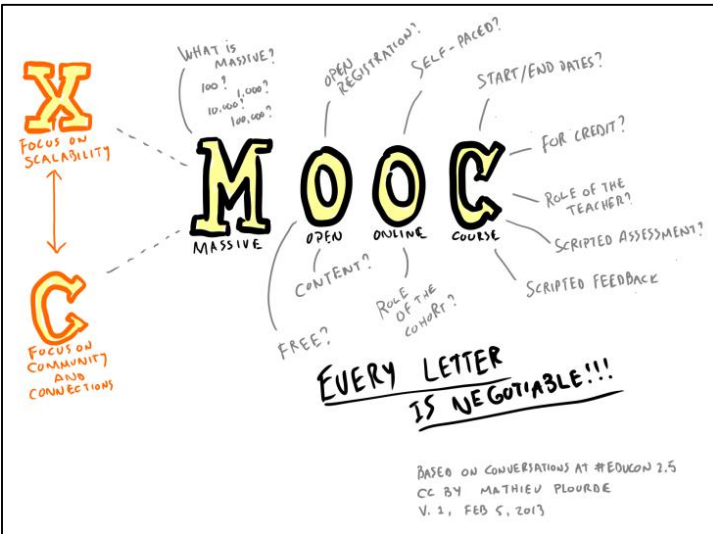 X
FOCUS ON
SCALABILITY
C
FOCUS ON
COMMUNITY
AND
CONNECTIONS
WHAT IS
MASSIVE?
100?
1,000?
10,000?
100,000?
OPEN
REGISTRATION?
SELF-PACED?
START/END DATES?
FOR CREDIT?
ROLE OF THE
TEACHER?
SCRIPTED ASSESSMENT?
SCRIPTED FEEDBACK
MOOC
MASSIVE OPEN ONLINE COURSE
CONTENT?
FREE?
ROLE
OF THE
COHORT?
EVERY LETTER
IS NEGOTIABLE!!!
BASED ON CONVERSATIONS AT #EDUCON 2.5
CC BY MATHIEU PLOURDE
V. 2, FEB 5, 2013